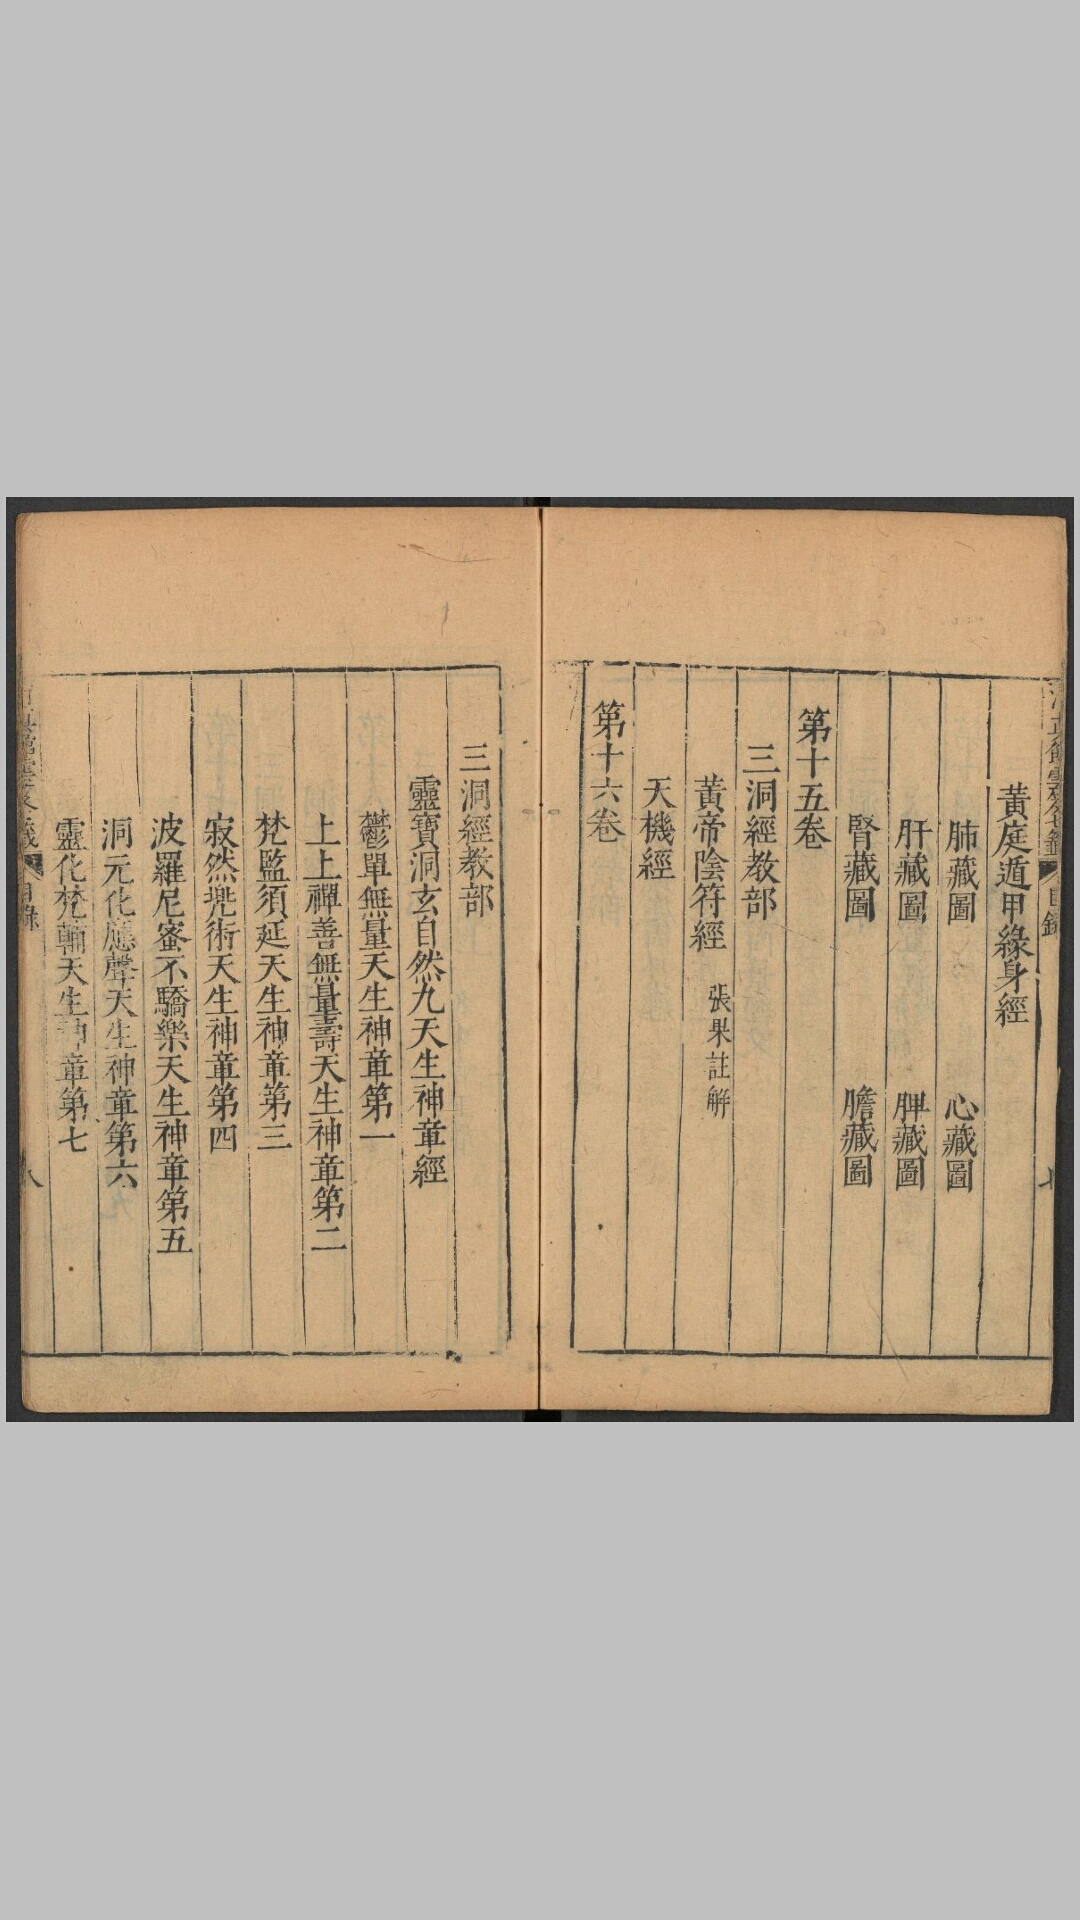 黃庭遁甲緣身經
肺藏圖　心藏圖
肝藏圖　脾藏圖
腎藏圖　膽藏圖
第十五卷
三洞經教部
黃帝陰符經　張果註解
天機經
第十六卷
三洞經教部
靈寶洞玄自然九天生神章經
鬱單無量天生神章第一
上上禪善無量壽天生神章第二
梵監須延天生神章第三
寂然兠術天生神章第四
波羅尼蜜不驕樂天生神章第五
洞元化應聲天生神章第六
靈化梵輔天生神章第七
目錄
八